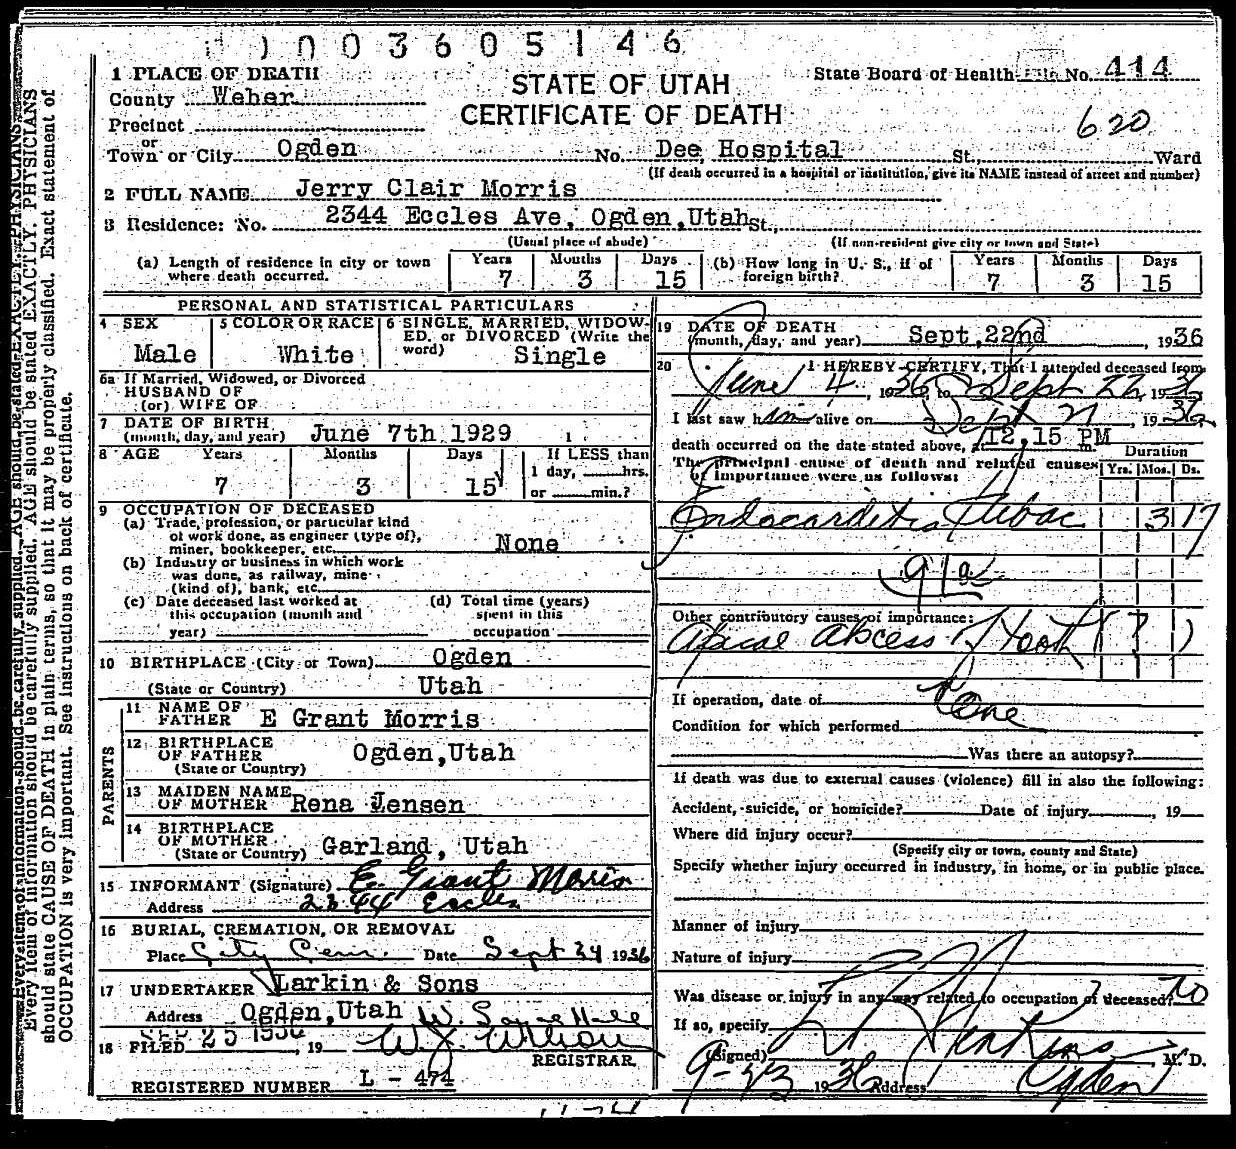 1003605146
1 PLACE OF DEATH
STATE OF UTAH
CERTIFICATE OF DEATH
State Board of Health File No. 414
County Weber
620
Precinct
or
Town or City Ogden No. Dee Hospital St., Ward
(If death occurred in a hospital or institution, give its NAME instead of street and number)
2 FULL NAME Jerry Clair Morris
3 Residence: No. 2344 Eccles Ave, Ogden, Utah St.,
(Usual place of abode) (If non-resident give city or town and State)
(a) Length of residence in city or town where death occurred. Years 7 Months 3 Days 15
(b) How long in U. S., if of foreign birth? Years 7 Months 3 Days 15
PERSONAL AND STATISTICAL PARTICULARS
4 SEX Male
5 COLOR OR RACE White
6 SINGLE, MARRIED, WIDOWED, or DIVORCED (Write the word) Single
6a If Married, Widowed, or Divorced
HUSBAND OF
(or) WIFE OF
7 DATE OF BIRTH
(month, day, and year) June 7th 1929 1
8 AGE Years 7 Months 3 Days 15
If LESS than
1 day, hrs.
or min.?
9 OCCUPATION OF DECEASED
(a) Trade, profession, or particular kind
of work done, as engineer (type of),
miner, bookkeeper, etc. None
(b) Industry or business in which work
was done, as railway, mine
(kind of), bank, etc.
(c) Date deceased last worked at
this occupation (month and
year)
(d) Total time (years)
spent in this
occupation
10 BIRTHPLACE (City or Town) Ogden
(State or Country) Utah
PARENTS
11 NAME OF
FATHER E Grant Morris
12 BIRTHPLACE
OF FATHER Ogden, Utah
(State or Country)
13 MAIDEN NAME
OF MOTHER Rena Jensen
14 BIRTHPLACE
OF MOTHER
(State or Country) Garland, Utah
15 INFORMANT (Signature) E. Grant Morris
Address 2344 Eccles
16 BURIAL, CREMATION, OR REMOVAL
Place City Cem. Date Sept 24 1936
17 UNDERTAKER Larkin & Sons
Address Ogden, Utah
18 FILED SEP 25 1936, 19
REGISTRAR
REGISTERED NUMBER L - 474
19 DATE OF DEATH
(month, day, and year) Sept, 22nd, 1936
20 I HEREBY CERTIFY, That I attended deceased from
June 4, 1936, to Sept 22, 1936
I last saw him alive on Sept 21, 1936
death occurred on the date stated above, at 12,15 PM m.
The principal cause of death and related causes
of importance were as follows:
Duration
Yrs. Mos. Ds.
Endocarditis 3 17
91a
Other contributory causes of importance:
Abscess of Tooth
If operation, date of None
Condition for which performed
Was there an autopsy?
If death was due to external causes (violence) fill in also the following:
Accident, suicide, or homicide? Date of injury , 19
Where did injury occur?
(Specify city or town, county and State)
Specify whether injury occurred in industry, in home, or in public place.
Manner of injury
Nature of injury
Was disease or injury in any way related to occupation of deceased? no
If so, specify
(Signed) Jenkins M. D.
9-23 1936 Address Ogden
Every item of information should be carefully supplied. AGE should be stated EXACTLY. PHYSICIANS
should state CAUSE OF DEATH in plain terms, so that it may be properly classified. Exact statement of
OCCUPATION is very important. See instructions on back of certificate.